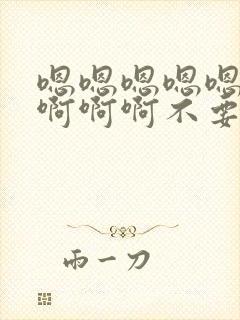 嗯嗯嗯嗯嗯
啊啊啊不要
雨一刀